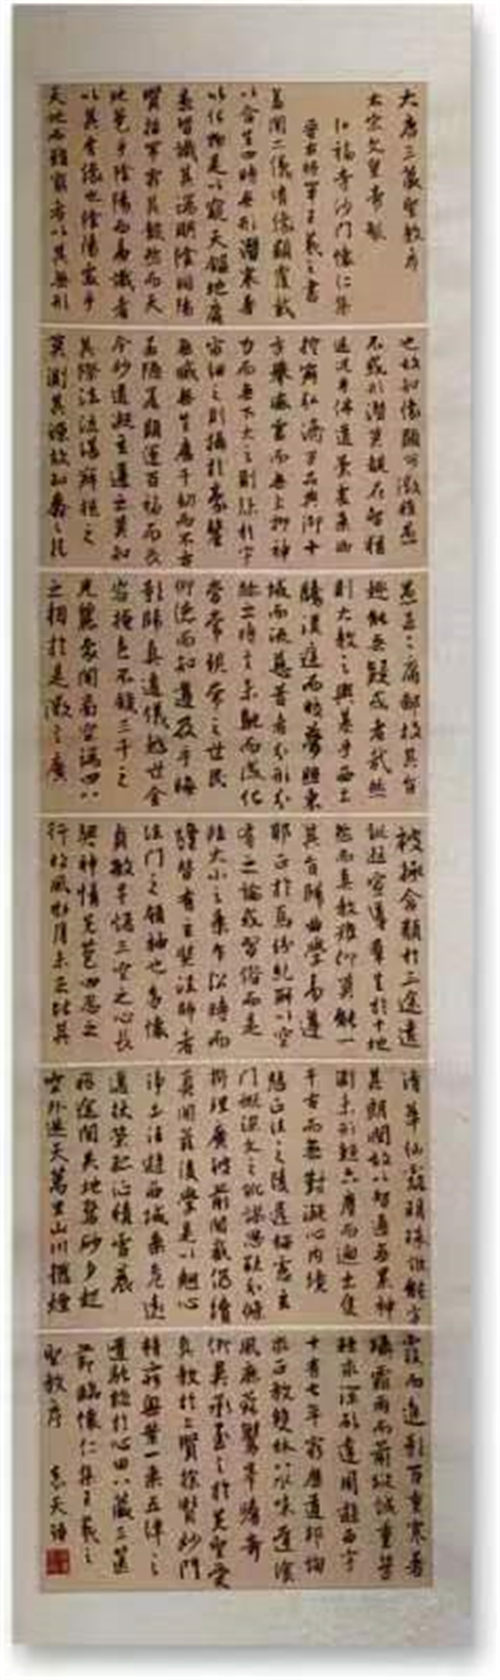 大唐三藏聖教序
太宗文皇帝製
弘福寺沙門懷仁集
晉右將軍王羲之書
蓋聞二儀有像顯覆載
以含生四時無形潛寒暑
以化物是以窺天鑑地庸
愚皆識其端明陰洞陽
賢哲罕窮其數然而天
地苞乎陰陽而易識者
以其有像也陰陽處乎
天地而難窮者以其無形
也故知像顯可徵雖愚
不惑形潛莫覩在智猶
迷況乎佛道崇虛乘幽
控寂弘濟萬品典御十
方舉威靈而無上抑神
力而無下大之則彌於宇
宙細之則攝於豪釐
無滅無生歷千劫而不古
若隱若顯運百福而長
今妙道凝玄遵之莫知
其際法流湛寂挹之
莫測其源故知蠢蠢凡
愚區區庸鄙投其旨
趣能無疑或者哉然
則大教之興基乎西土
騰漢庭而皎夢照東
域而流慈昔者分形分
跡之時言未馳而成化
當常現常之世民
仰德而知遵及乎晦
影歸真遷儀越世金
容掩色不鏡三千之
光麗象開圖空端四八
之相於是微言廣
被拯含類於三途遺
訓遐宣導群生於十地
然而真教難仰莫能一
其旨歸曲學易遵
耶正於焉紛糺所以空
有之論或習俗而是
非大小之乘乍沿時而
隆替有玄奘法師者
法門之領袖也幼懷
貞敏早悟三空之心長
契神情先苞四忍之
行松風水月未足比其
清華仙露明珠詎能方
其朗潤故以智通無累神
測未形超六塵而迥出隻
千古而無對凝心內境
悲正法之陵遲栖慮玄
門慨深文之訛謬思欲分條
析理廣彼前聞截偽續
真開茲後學是以翹心
淨土往遊西域乘危遠
邁杖策孤征積雪晨
飛途閒失地驚砂夕起
空外迷天萬里山川撥煙
霞而進影百重寒暑
躡霜雨而前蹤誠重勞
輕求深願達周遊西宇
十有七年窮歷道邦詢
求正教雙林八水味道湌
風鹿菀鷲峯瞻奇
仰異承至言於先聖受
真教於上賢探賾妙門
精窮奧業一乘五律之
道馳驟於心田八藏三篋
節臨懷仁集王羲之
聖教序